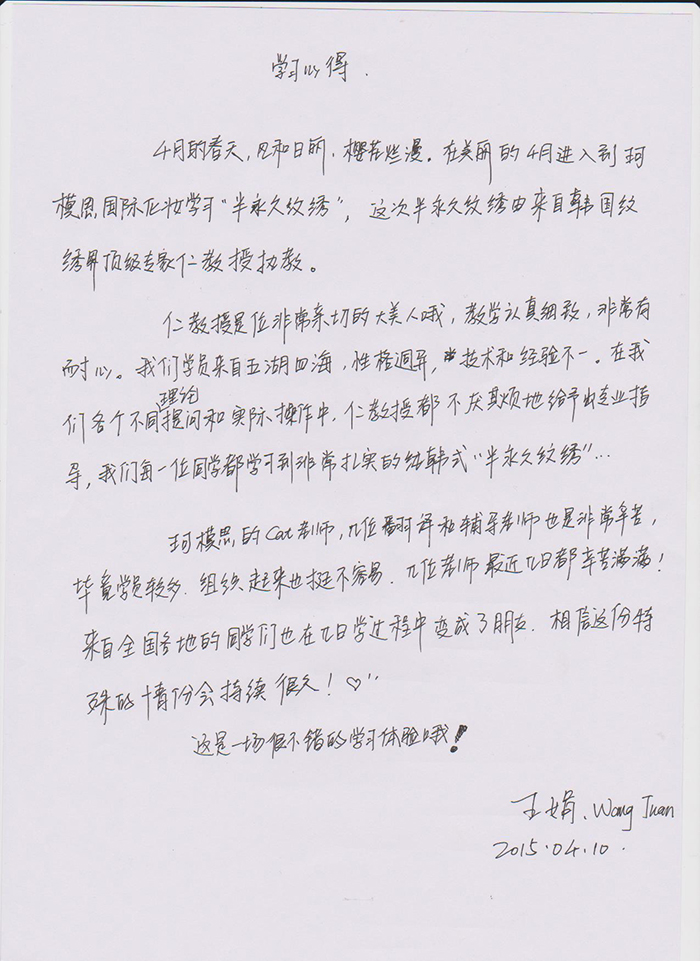 学习心得.
4月的春天,风和日丽,樱花烂漫。在美丽的4月进入到珂
模思国际化妆学习“半永久纹绣”,这次半永久纹绣由来自韩国纹
绣界顶级专家仁教授执教。
仁教授是位非常亲切的大美人哦,教学认真细致,非常有
耐心。我们学员来自五湖四海,性格迥异,技术和经验不一。在我
理论
们各个不同提问和实际操作中,仁教授都不厌其烦地给予出专业指
导,我们每一位同学都学习到非常扎实的纯韩式“半永久纹绣”...
珂模思的Cat老师,几位翻译和辅导老师也是非常辛苦,
毕竟学员较多.组织起来也挺不容易.几位老师最近几日都辛苦满满!
来自全国各地的同学们也在几日学过程中变成了朋友.相信这份特
殊的情份会持续很久!♡
这是一场很不错的学习体验哦!
王娟.Wang Juan
2015.04.10.